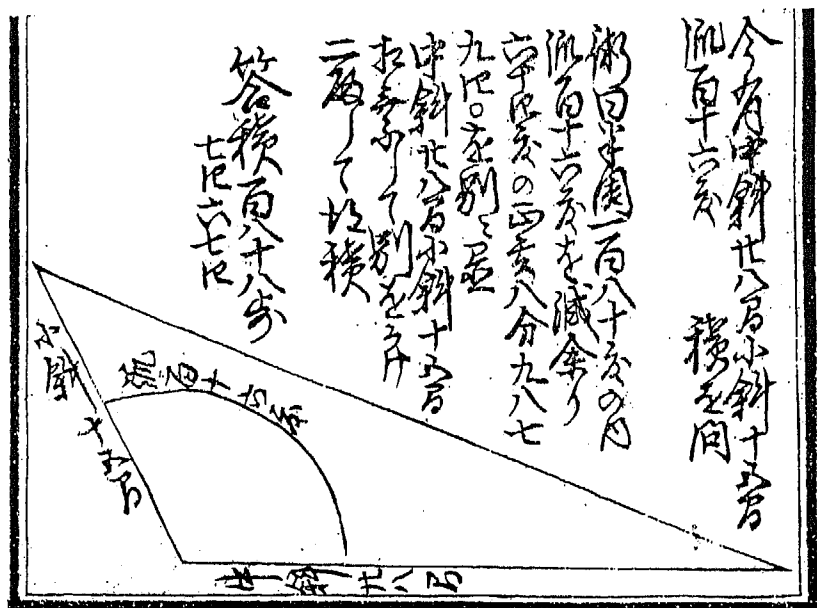 今有中斜廿八間小斜十五間
弧百十六度　積を問
術曰半周一百八十度の内
弧百十六度を減余り
六十四度の正玄八分九八七
九四〇を別に置
中斜廿八間小斜十五間
相乗して別をかけ
二段して得積
答積百八十八歩
七四六七四
弧百十六度
小斜十五間
中斜廿八間